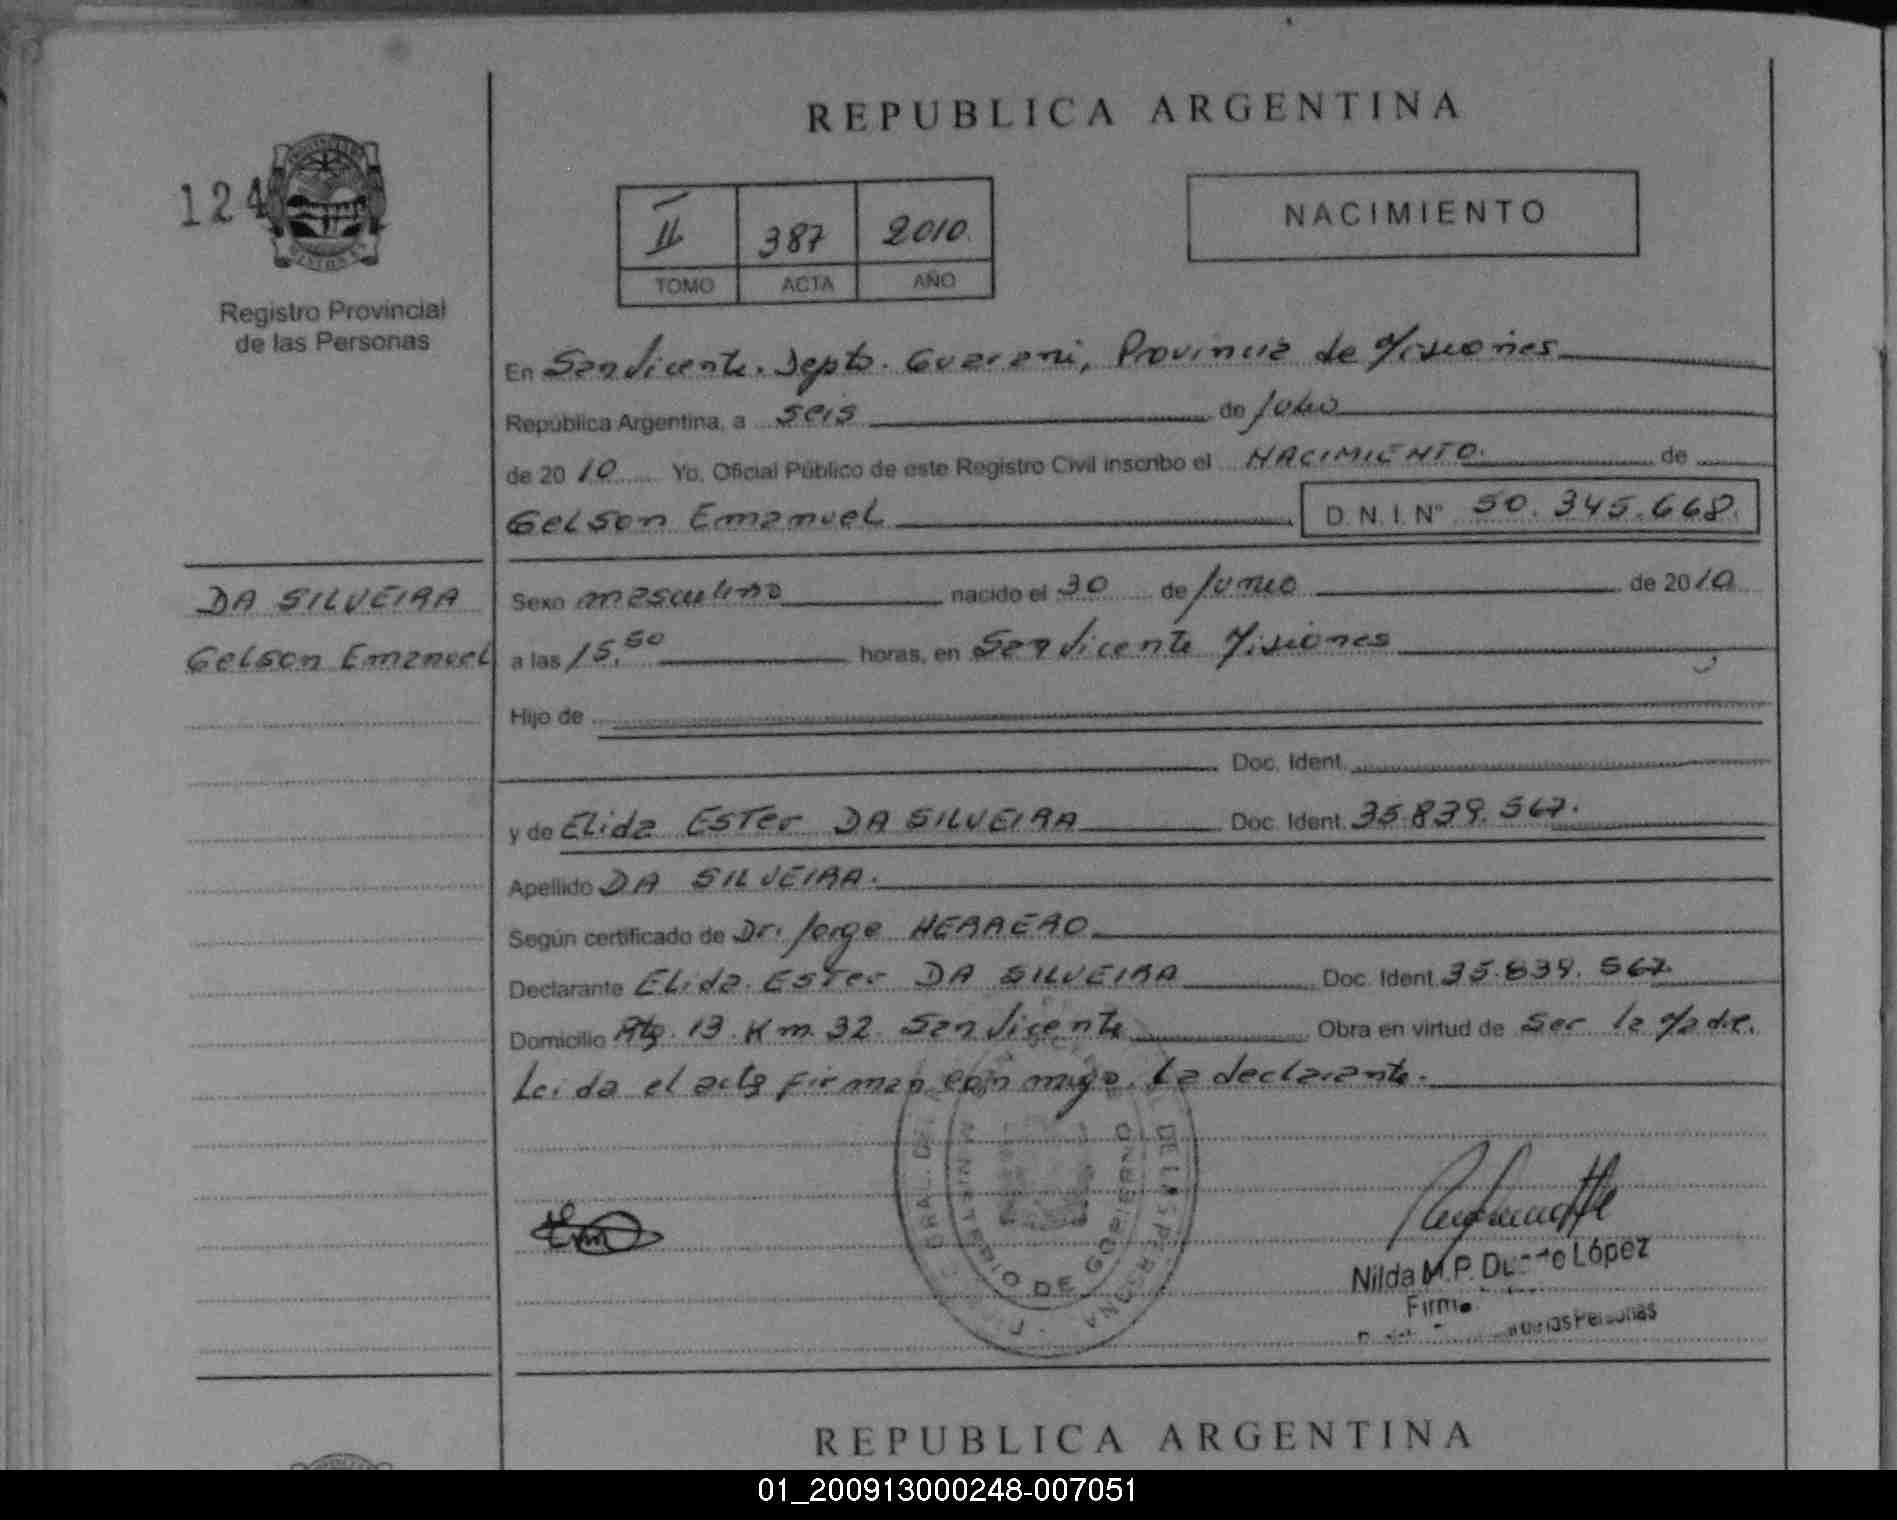 REPUBLICA ARGENTINA
124
Registro Provincial
de las Personas
II 387 2010
TOMO ACTA AÑO
NACIMIENTO
En San Vicente. Depto. Guarani, Provincia de Misiones
República Argentina, a seis de Julio
de 2010 Yo, Oficial Público de este Registro Civil inscribo el NACIMIENTO. de
Gelson Emanuel D.N.I. Nº 50.345.668.
DA SILVEIRA
Gelson Emanuel
Sexo masculino nacido el 30 de Junio de 2010
a las 15,50 horas, en San Vicente Misiones
Hijo de
Doc. Ident.
y de Elida Ester DA SILVEIRA Doc. Ident. 35.839.567.
Apellido DA SILVEIRA.
Según certificado de Dr. Jorge HERRERO
Declarante Elida Ester DA SILVEIRA Doc. Ident. 35.839.567.
Domicilio Rta. 13. Km. 32. San Vicente Obra en virtud de ser la Madre.
Leida el acta firman con migo. La declarante.
MINISTERIO DE GOBIERNO
DE LAS PERSONA
Nilda M.P. Duarte López
las Personas
REPUBLICA ARGENTINA
01_200913000248-007051